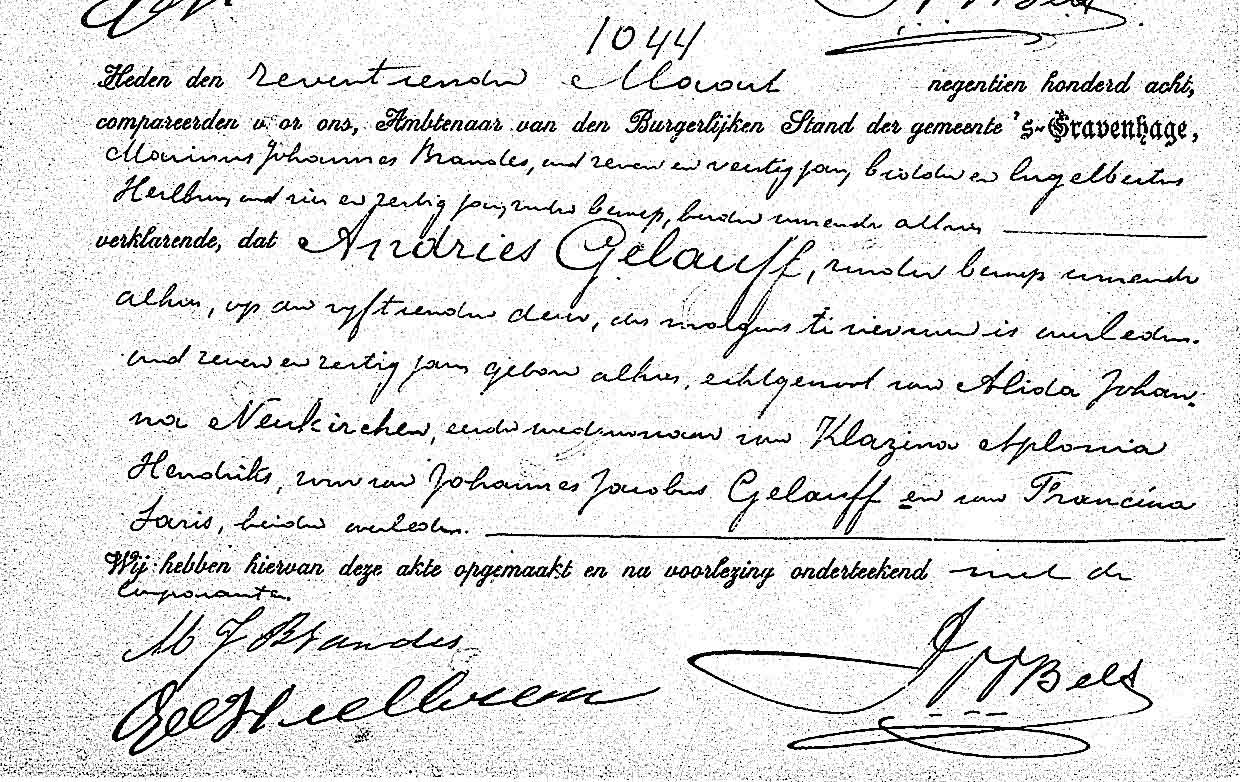 1044
Heden den zeventienden Maart negentien honderd acht,
compareerden voor ons, Ambtenaar van den Burgerlijken Stand der gemeente 's-Gravenhage,
Marinus Johannes Brandes, oud zeven en veertig jaar, bidder en Engelbertus
oud zes en zestig jaar, zonder beroep, beiden wonende alhier,
verklarende, dat Andries Gelauff, zonder beroep wonende
alhier, op den vijftienden dezer, des morgens te is overleden.
oud zeven en zestig jaar geboren alhier, echtgenoot van Alida Johan-
na Neukirchen, eerder weduwnaar van Klazina Aplonia
Hendriks, zoon van Johannes Jacobus Gelauff en van Francina
Saris, beiden overleden.
Wij hebben hiervan deze akte opgemaakt en na voorlezing onderteekend met de
comparanten.
M J Brandes